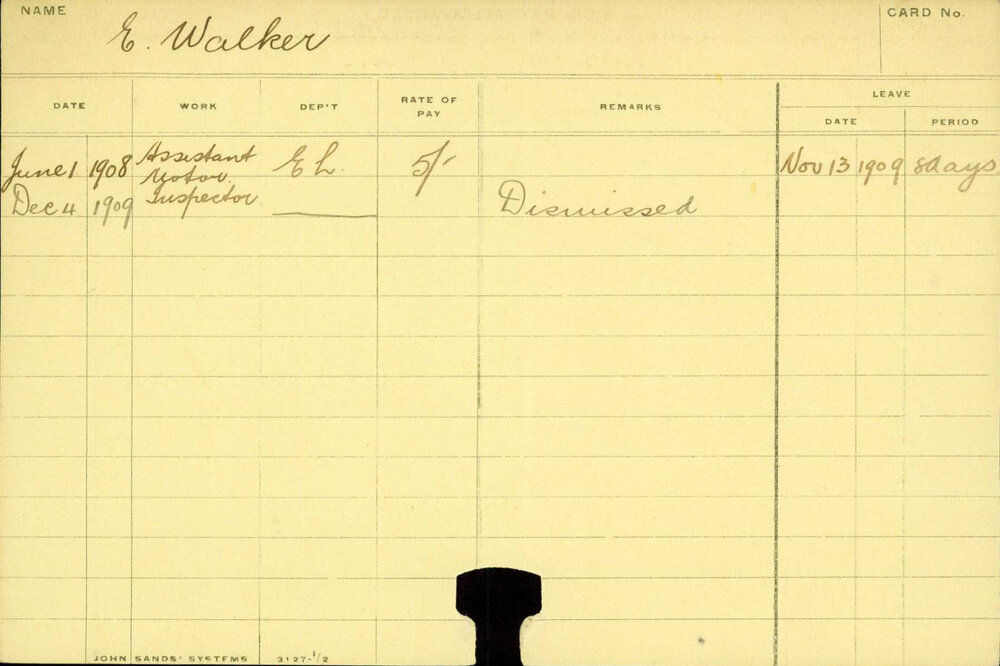 NAME
E. Walker
CARD No.
DATE WORK DEP'T RATE OF PAY REMARKS LEAVE
DATE PERIOD
June 1 1908 Assistant E L. 5/- Nov 13 1909 8days.
Motor
Dec 4 1909 Inspector Dismissed
JOHN SANDS' SYSTEMS 3127-1/2